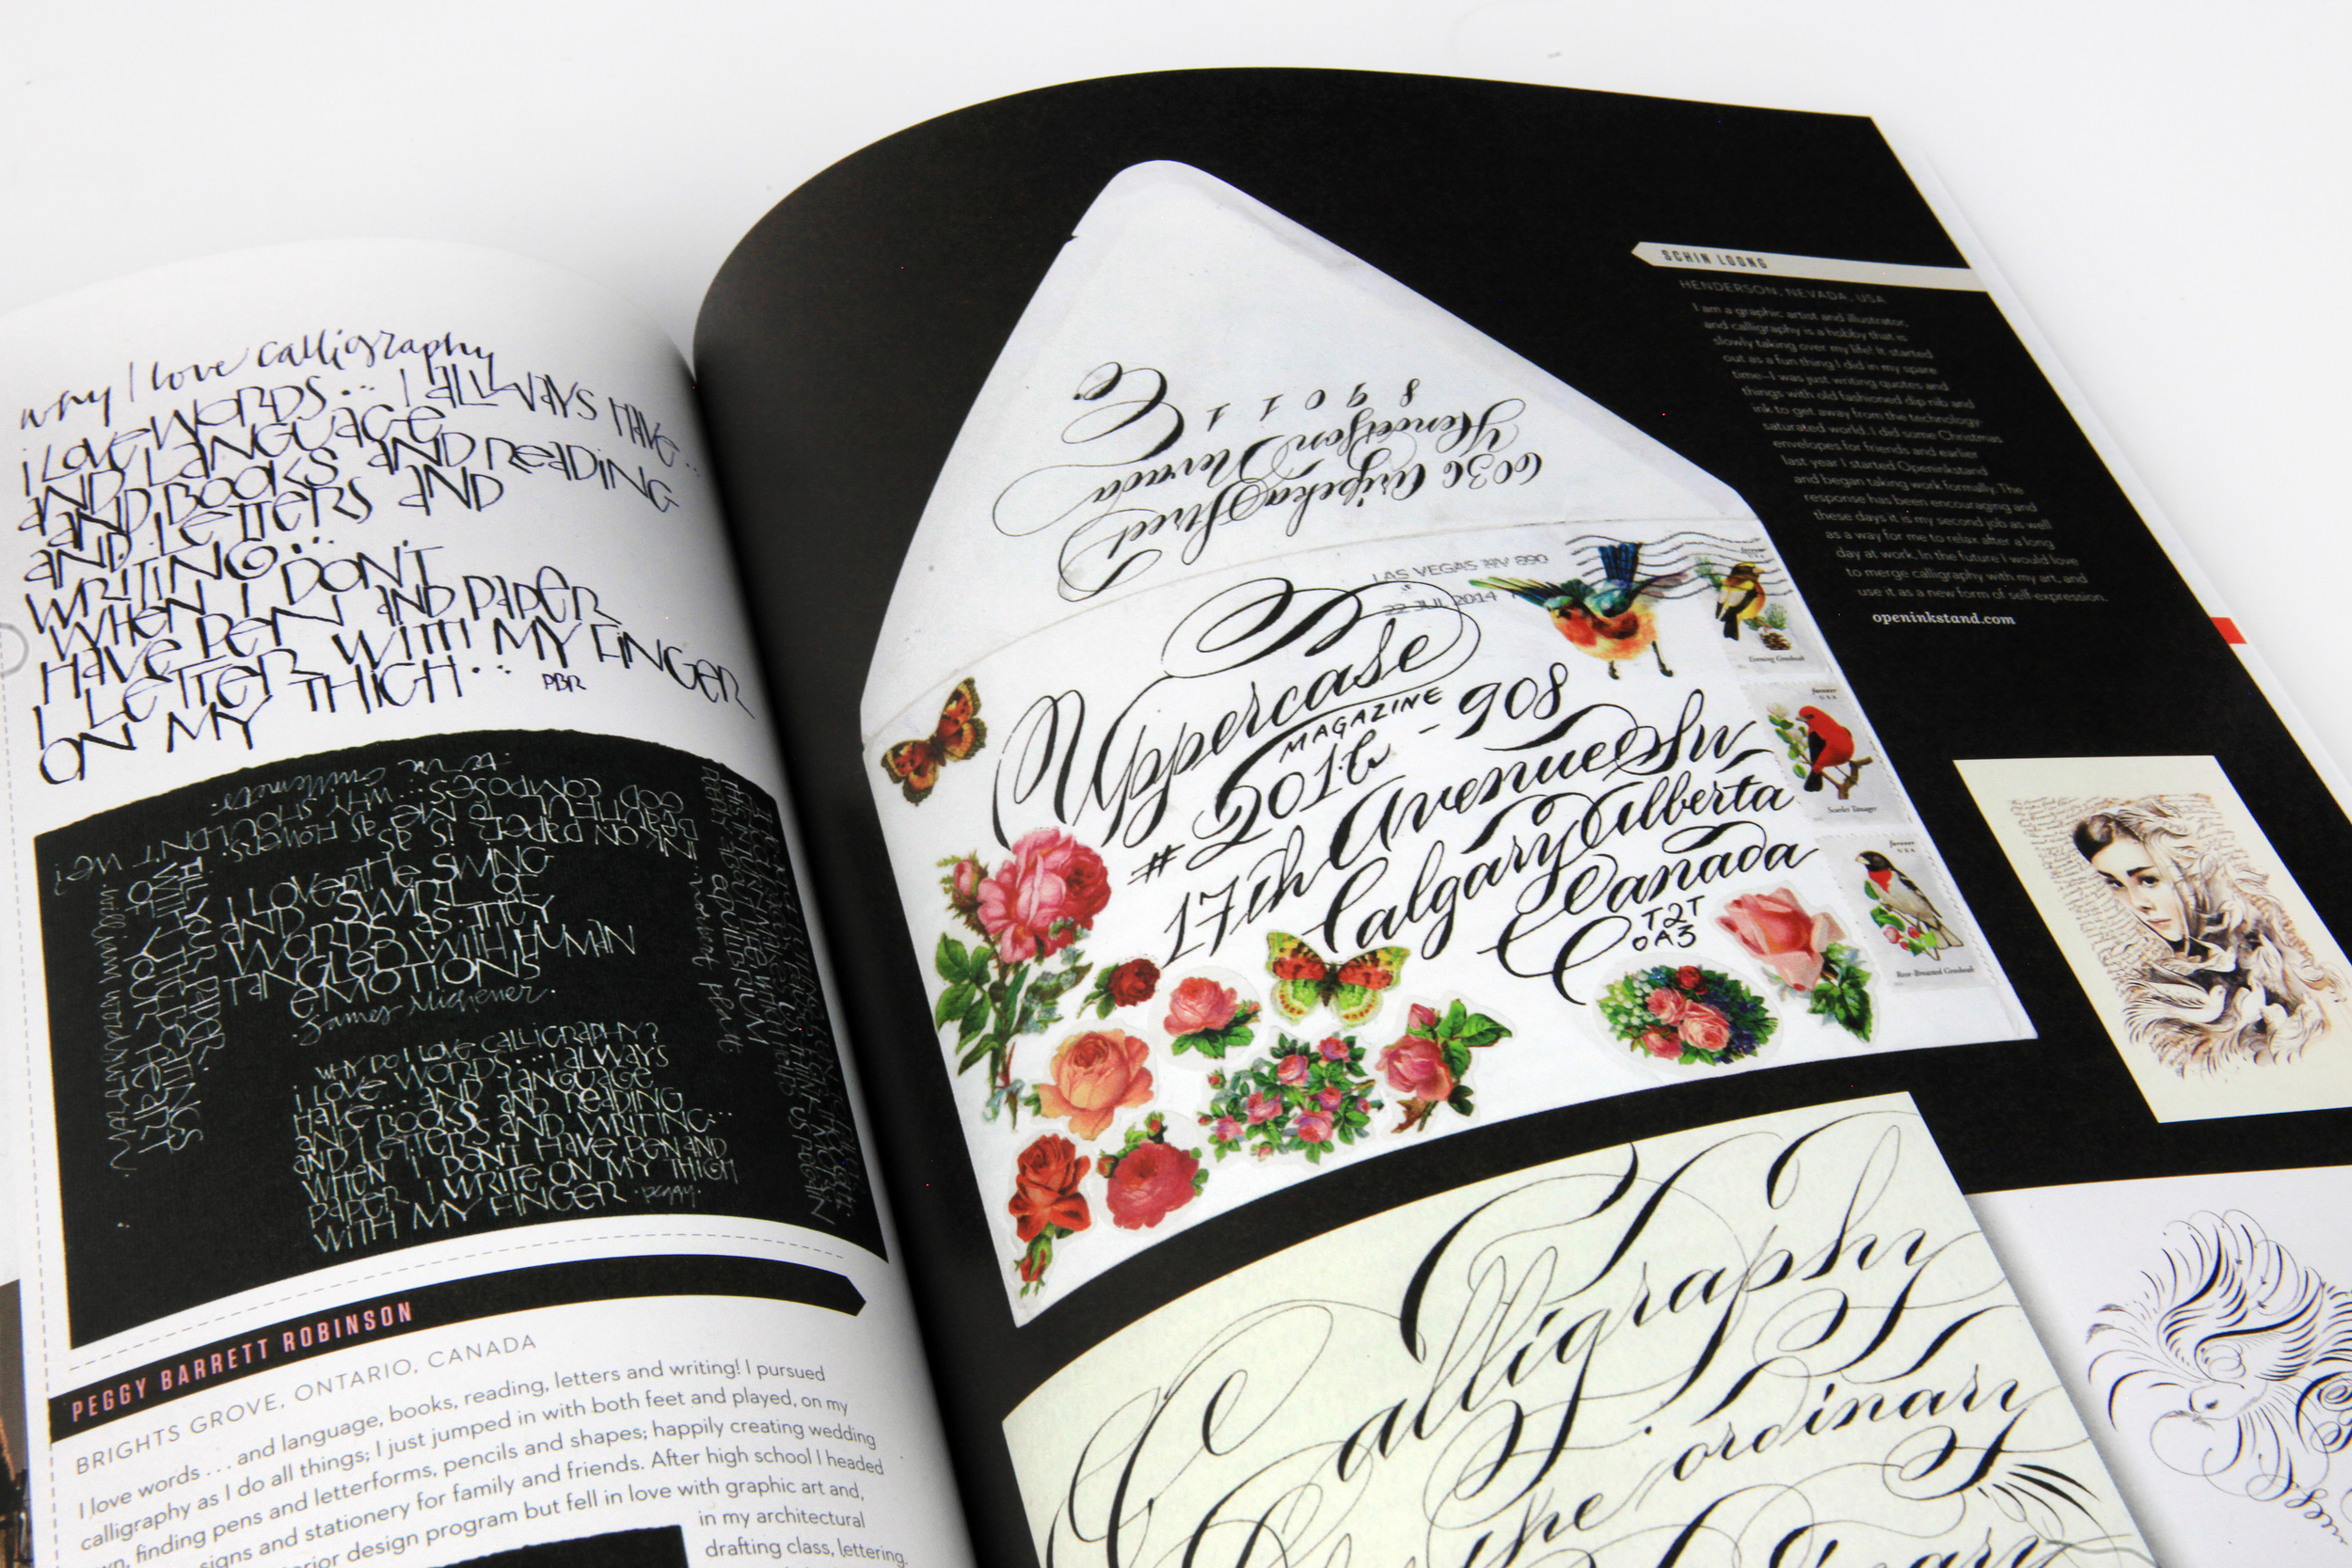 why I love calligraphy
i LOVE WORDS... I ALWAYS HAVE...
AND LANGUAGE
AND BOOKS AND READING
AND LETTERS AND
WRITING...
WHEN I DON'T
HAVE PEN AND PAPER
I LETTER WITH MY FINGER
ON MY THIGH...
PBR
INK ON PAPER IS AS
BEAUTIFUL TO ME AS FLOWERS.
GOD COMPOSES... WHY SHOULDN'T WE?
FILL YOUR PAPER
WITH THE BREATHINGS
OF YOUR HEART
william wordsworth
I LOVE THE SWING
AND SWIRL OF
WORDS AS THEY
TANGLE WITH HUMAN
EMOTIONS
James Michener.
WHY DO I LOVE CALLIGRAPHY?
i LOVE WORDS... I ALWAYS
HAVE... AND LANGUAGE
AND BOOKS AND READING
AND LETTERS AND WRITING...
WHEN I DON'T HAVE PEN AND
PAPER I WRITE ON MY THIGH
WITH MY FINGER. peggy.
PEGGY BARRETT ROBINSON
BRIGHTS GROVE, ONTARIO, CANADA
I love words ... and language, books, reading, letters and writing! I pursued
calligraphy as I do all things; I just jumped in with both feet and played, on my
finding pens and letterforms, pencils and shapes; happily creating wedding
signs and stationery for family and friends. After high school I headed
design program but fell in love with graphic art and,
in my architectural
drafting class, lettering.
6036 Aripeka Street
Henderson Nevada
89011
LAS VEGAS NV 890
22 JUL 2014
Uppercase
MAGAZINE
# 201B - 908
17th Avenue SW
Calgary Alberta
Canada
T2T
0A3
forever
USA
Evening Grosbeak
forever
USA
Scarlet Tanager
forever
USA
Rose-Breasted Grosbeak
SCHIN LOONG
HENDERSON, NEVADA, USA
I am a graphic artist and illustrator,
and calligraphy is a hobby that is
slowly taking over my life! It started
out as a fun thing I did in my spare
time—I was just writing quotes and
things with old fashioned dip nib and
ink to get away from the technology-
saturated world. I did some Christmas
envelopes for friends and earlier
last year I started Openinkstand
and began taking work formally. The
response has been encouraging and
these days it is my second job as well
as a way for me to relax after a long
day at work. In the future I would love
to merge calligraphy with my art, and
use it as a new form of self-expression.
openinkstand.com
Calligraphy
the ordinary